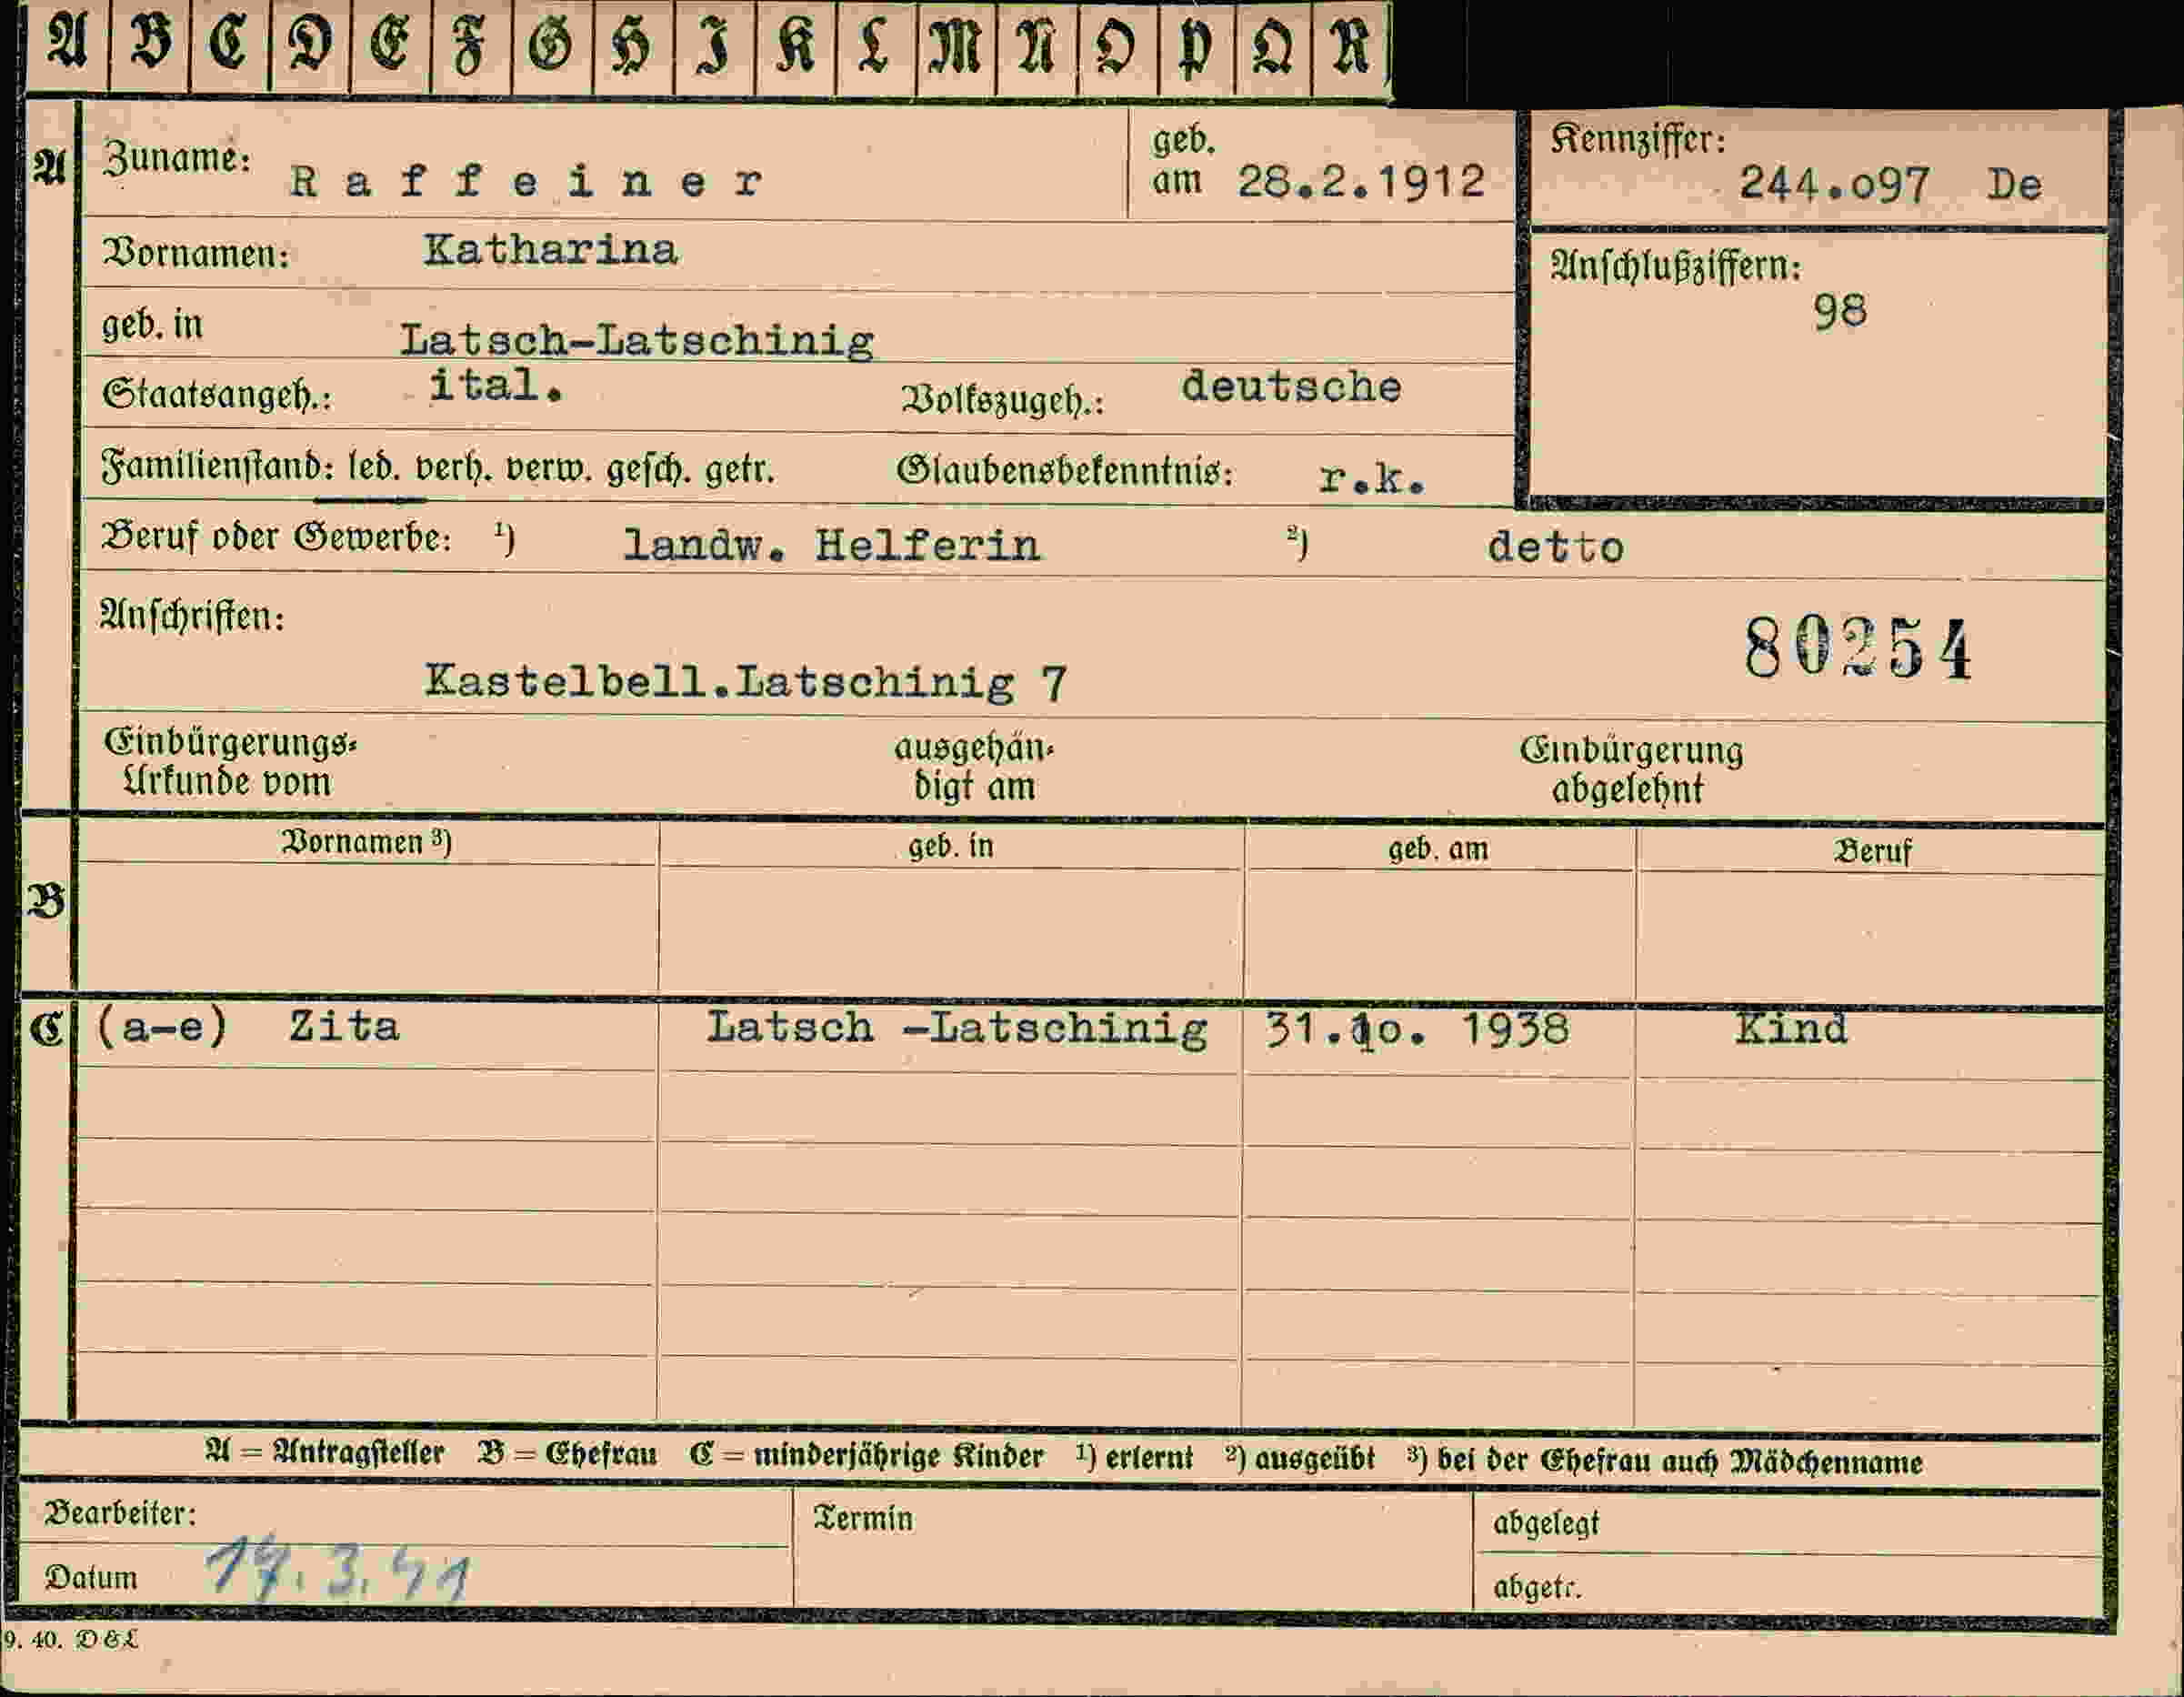 A B C D E F G H I K L M N O P Q R
A Zuname: Raffeiner geb. am 28.2.1912 Kennziffer: 244.o97 De
Vornamen: Katharina Anschlußziffern: 98
geb. in Latsch-Latschinig
Staatsangeh.: ital. Volkszugeh.: deutsche
Familienstand: led. verh. verw. gesch. getr. Glaubensbekenntnis: r.k.
Beruf oder Gewerbe: ¹) landw. Helferin ²) detto
Anschriften: 80254
Kastelbell.Latschinig 7
Einbürgerungs- ausgehän- Einbürgerung
Urkunde vom digt am abgelehnt
Vornamen ³) geb. in geb. am Beruf
B
C (a-e) Zita Latsch -Latschinig 31.1o. 1938 Kind
A = Antragsteller B = Ehefrau C = minderjährige Kinder ¹) erlernt ²) ausgeübt ³) bei der Ehefrau auch Mädchenname
Bearbeiter: Termin abgelegt
Datum 17.3.41 abgetr.
9. 40. D & L